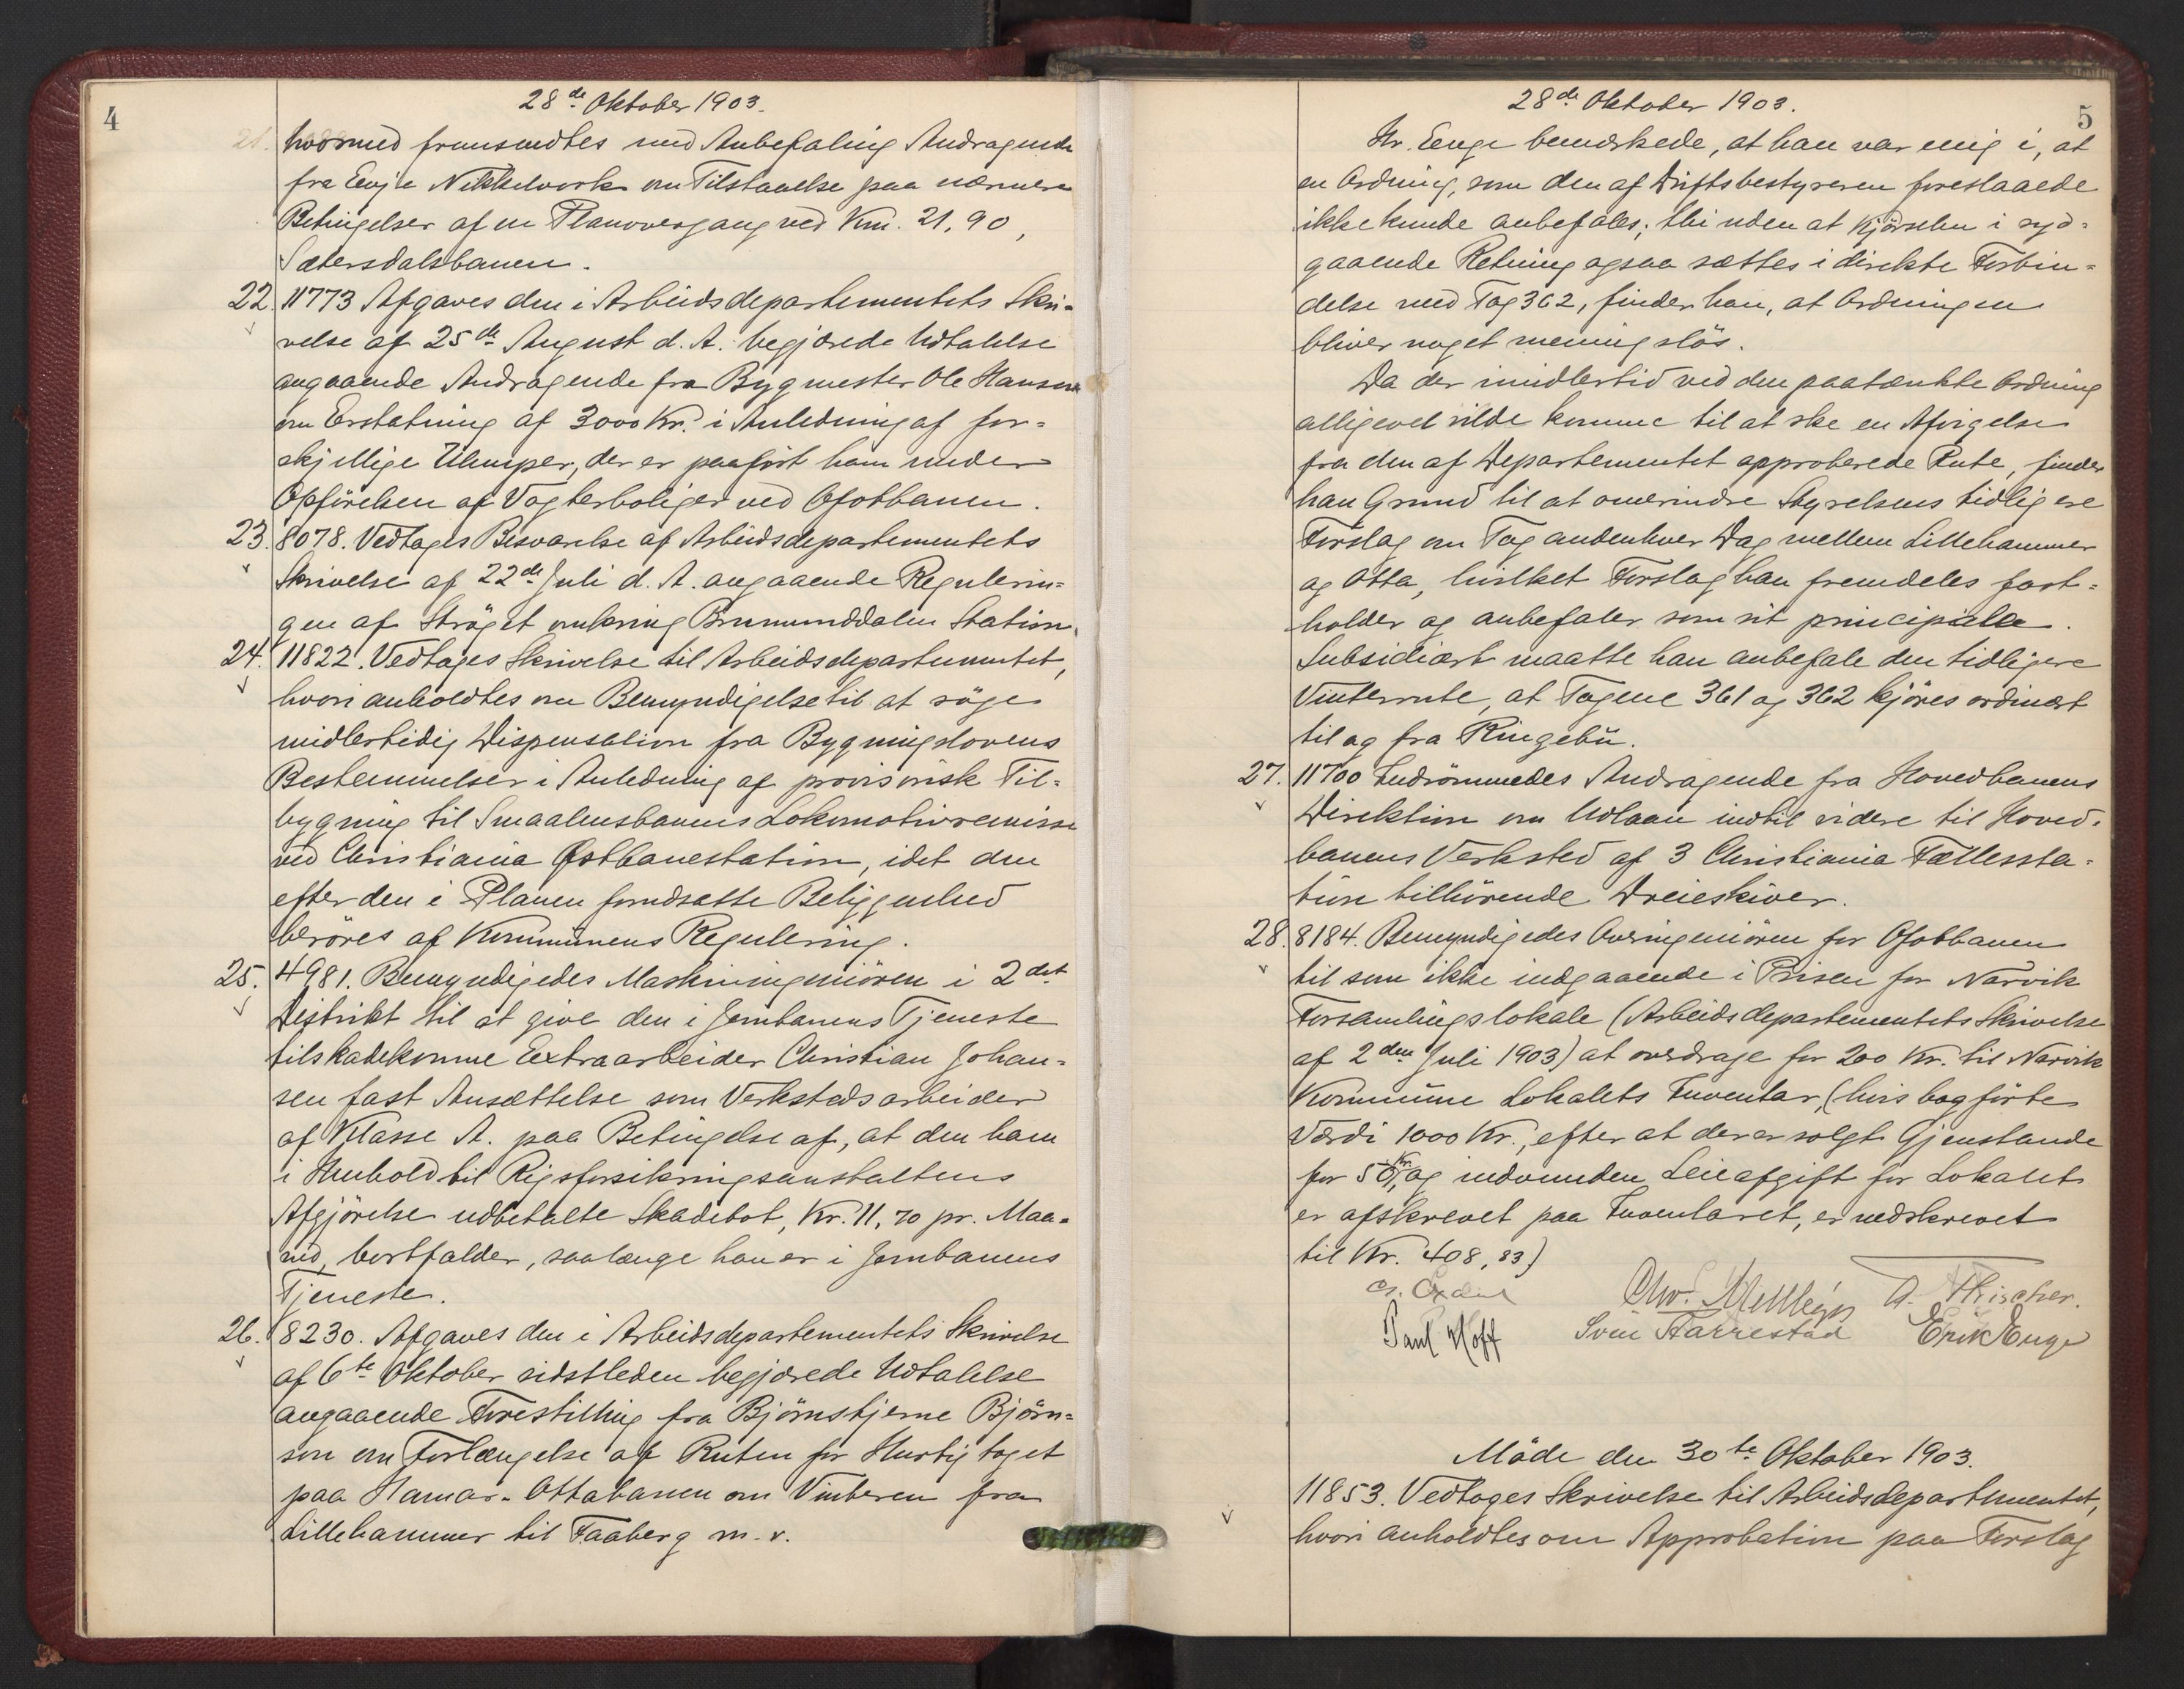 4
28de Oktober 1903.
21. hvormed fremsendtes med Anbefaling Andragende
fra Evje Nikkelverk om Tilstaaelse paa nærmere
Betingelser af en Planovergang ved Km. 21,90,
Sætersdalsbanen.
22. 11773 Afgaves den i Arbeidsdepartementets Skri-
velse af 25de August d. A. begjærede Udtalelse
angaaende Andragende fra Bygmester Ole Hansen
om Erstatning af 3000 Kr. i Anledning af for-
skjellige Ulemper, der er paaført ham under
Opførelsen af Vogterboliger ved Ofotbanen.
23. 8078. Vedtages Besvarelse af Arbeidsdepartementets
Skrivelse af 22de Juli d. A. angaaende Regulerin-
gen af Strøget omkring Brumunddalen Station.
24. 11822. Vedtages Skrivelse til Arbeidsdepartementet,
hvori anholdtes om Bemyndigelse til at søge
midlertidig Dispensation fra Bygningslovens
Bestemmelser i Anledning af provisorisk Til-
bygning til Smaalensbanens Lokomotivremisse
ved Christiania Østbanestation, idet den
efter den i Planen forudsatte Beliggenhed
berøres af Kommunens Regulering.
25. 4981. Bemyndigedes Maskiningeniøren i 2det
Distrikt til at give den i Jernbanens Tjeneste
tilskadekomne Extraarbeider Christian Johan-
sen fast Ansættelse som Verkstedsarbeider
af Klasse A. paa Betingelse af, at den ham
i Henhold til Rigsforsikringsanstaltens
Afgjørelse udbetalte Skadebot, Kr. 11,70 pr. Maa-
ned, bortfalder, saalænge han er i Jernbanens
Tjeneste.
26. 8230. Afgaves den i Arbeidsdepartementets Skrivelse
af 6te Oktober sidstleden begjærede Udtalelse
angaaende Forestilling fra Bjørnstjerne Bjørn-
son om Forlængelse af Ruten for Hurtigtoget
paa Hamar-Ottabanen om Vinteren fra
Lillehammer til Faaberg m. v.
5
28de Oktober 1903.
Hr. Enge bemærkede, at han var enig i, at
en Ordning, som den af Driftsbestyreren foreslaaede
ikke kunde anbefales; thi uden at Kjørselen i syd-
gaaende Retning ogsaa sættes i direkte Forbin-
delse med Tog 362, finder han, at Ordningen
bliver noget meningsløs.
Da der imidlertid ved den paatænkte Ordning
alligevel vilde komme til at ske en Afvigelse
fra den af Departementet approberede Rute, finder
han Grund til at omerindre Styrelsens tidligere
Forslag om Tog andenhver Dag mellem Lillehammer
og Otta, hvilket Forslag han fremdeles fast-
holder og anbefaler som sit principielle.
Subsidiært maatte han anbefale den tidligere
Vinterrute, at Togene 361 og 362 kjøres ordinært
til og fra Ringebu.
27. 11700 Indrømmedes Andragende fra Hovedbanens
Direktion om Udlaan indtil videre til Hoved-
banens Verksted af 3 Christiania Fællessta-
tion tilhørende Dreieskiver.
28. 8184. Bemyndigedes Overingeniøren for Ofotbanen
til som ikke indgaaende i Prisen for Narvik
Forsamlingslokale (Arbeidsdepartementets Skrivelse
af 2den Juli 1903) at overdrage for 200 Kr. til Narvik
Kommune Lokalets Inventar, (hvis bogførte
Værdi 1000 Kr., efter at der er solgt Gjenstande
for 50 Kr., og indvunden Leieafgift for Lokalet
er afskrevet paa Inventaret, er nedskrevet
til Kr. 408,83)
Chr. A. Fischer.
Paul Hoff Svein Aarrestad Erik Enge
Møde den 30te Oktober 1903.
11853. Vedtages Skrivelse til Arbeidsdepartementet,
hvori anholdtes om Approbation paa Forslag